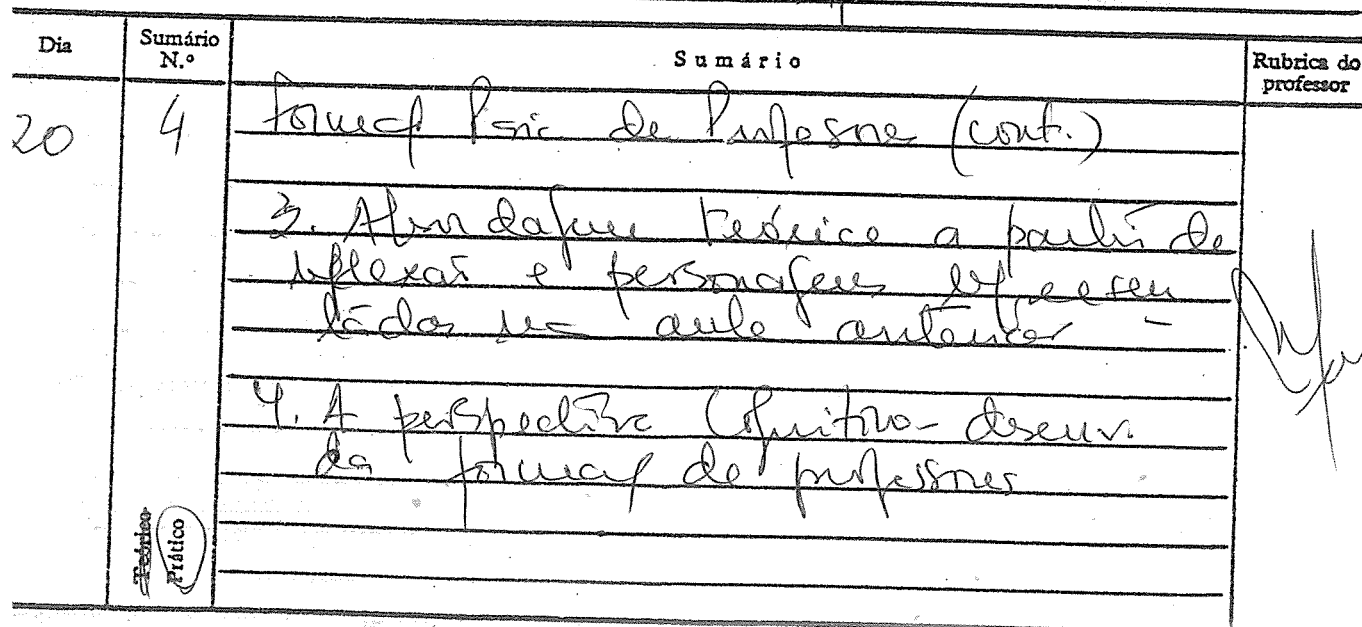 Dia Sumário N.º Sumário Rubrica do professor
20 4 Formaç Psic de Professores (cont.)
3. Abordagem teórica a partir de
reflexões e personagens apresen
tados na aula anterior -
4. A perspectiva Cognitivo-desenv.
da formaç de professores
Teórico
Prático